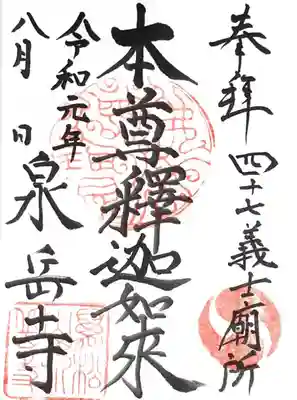 奉拝 四十七義士廟所
本尊釋迦如来
令和元年
八月 日 泉岳寺